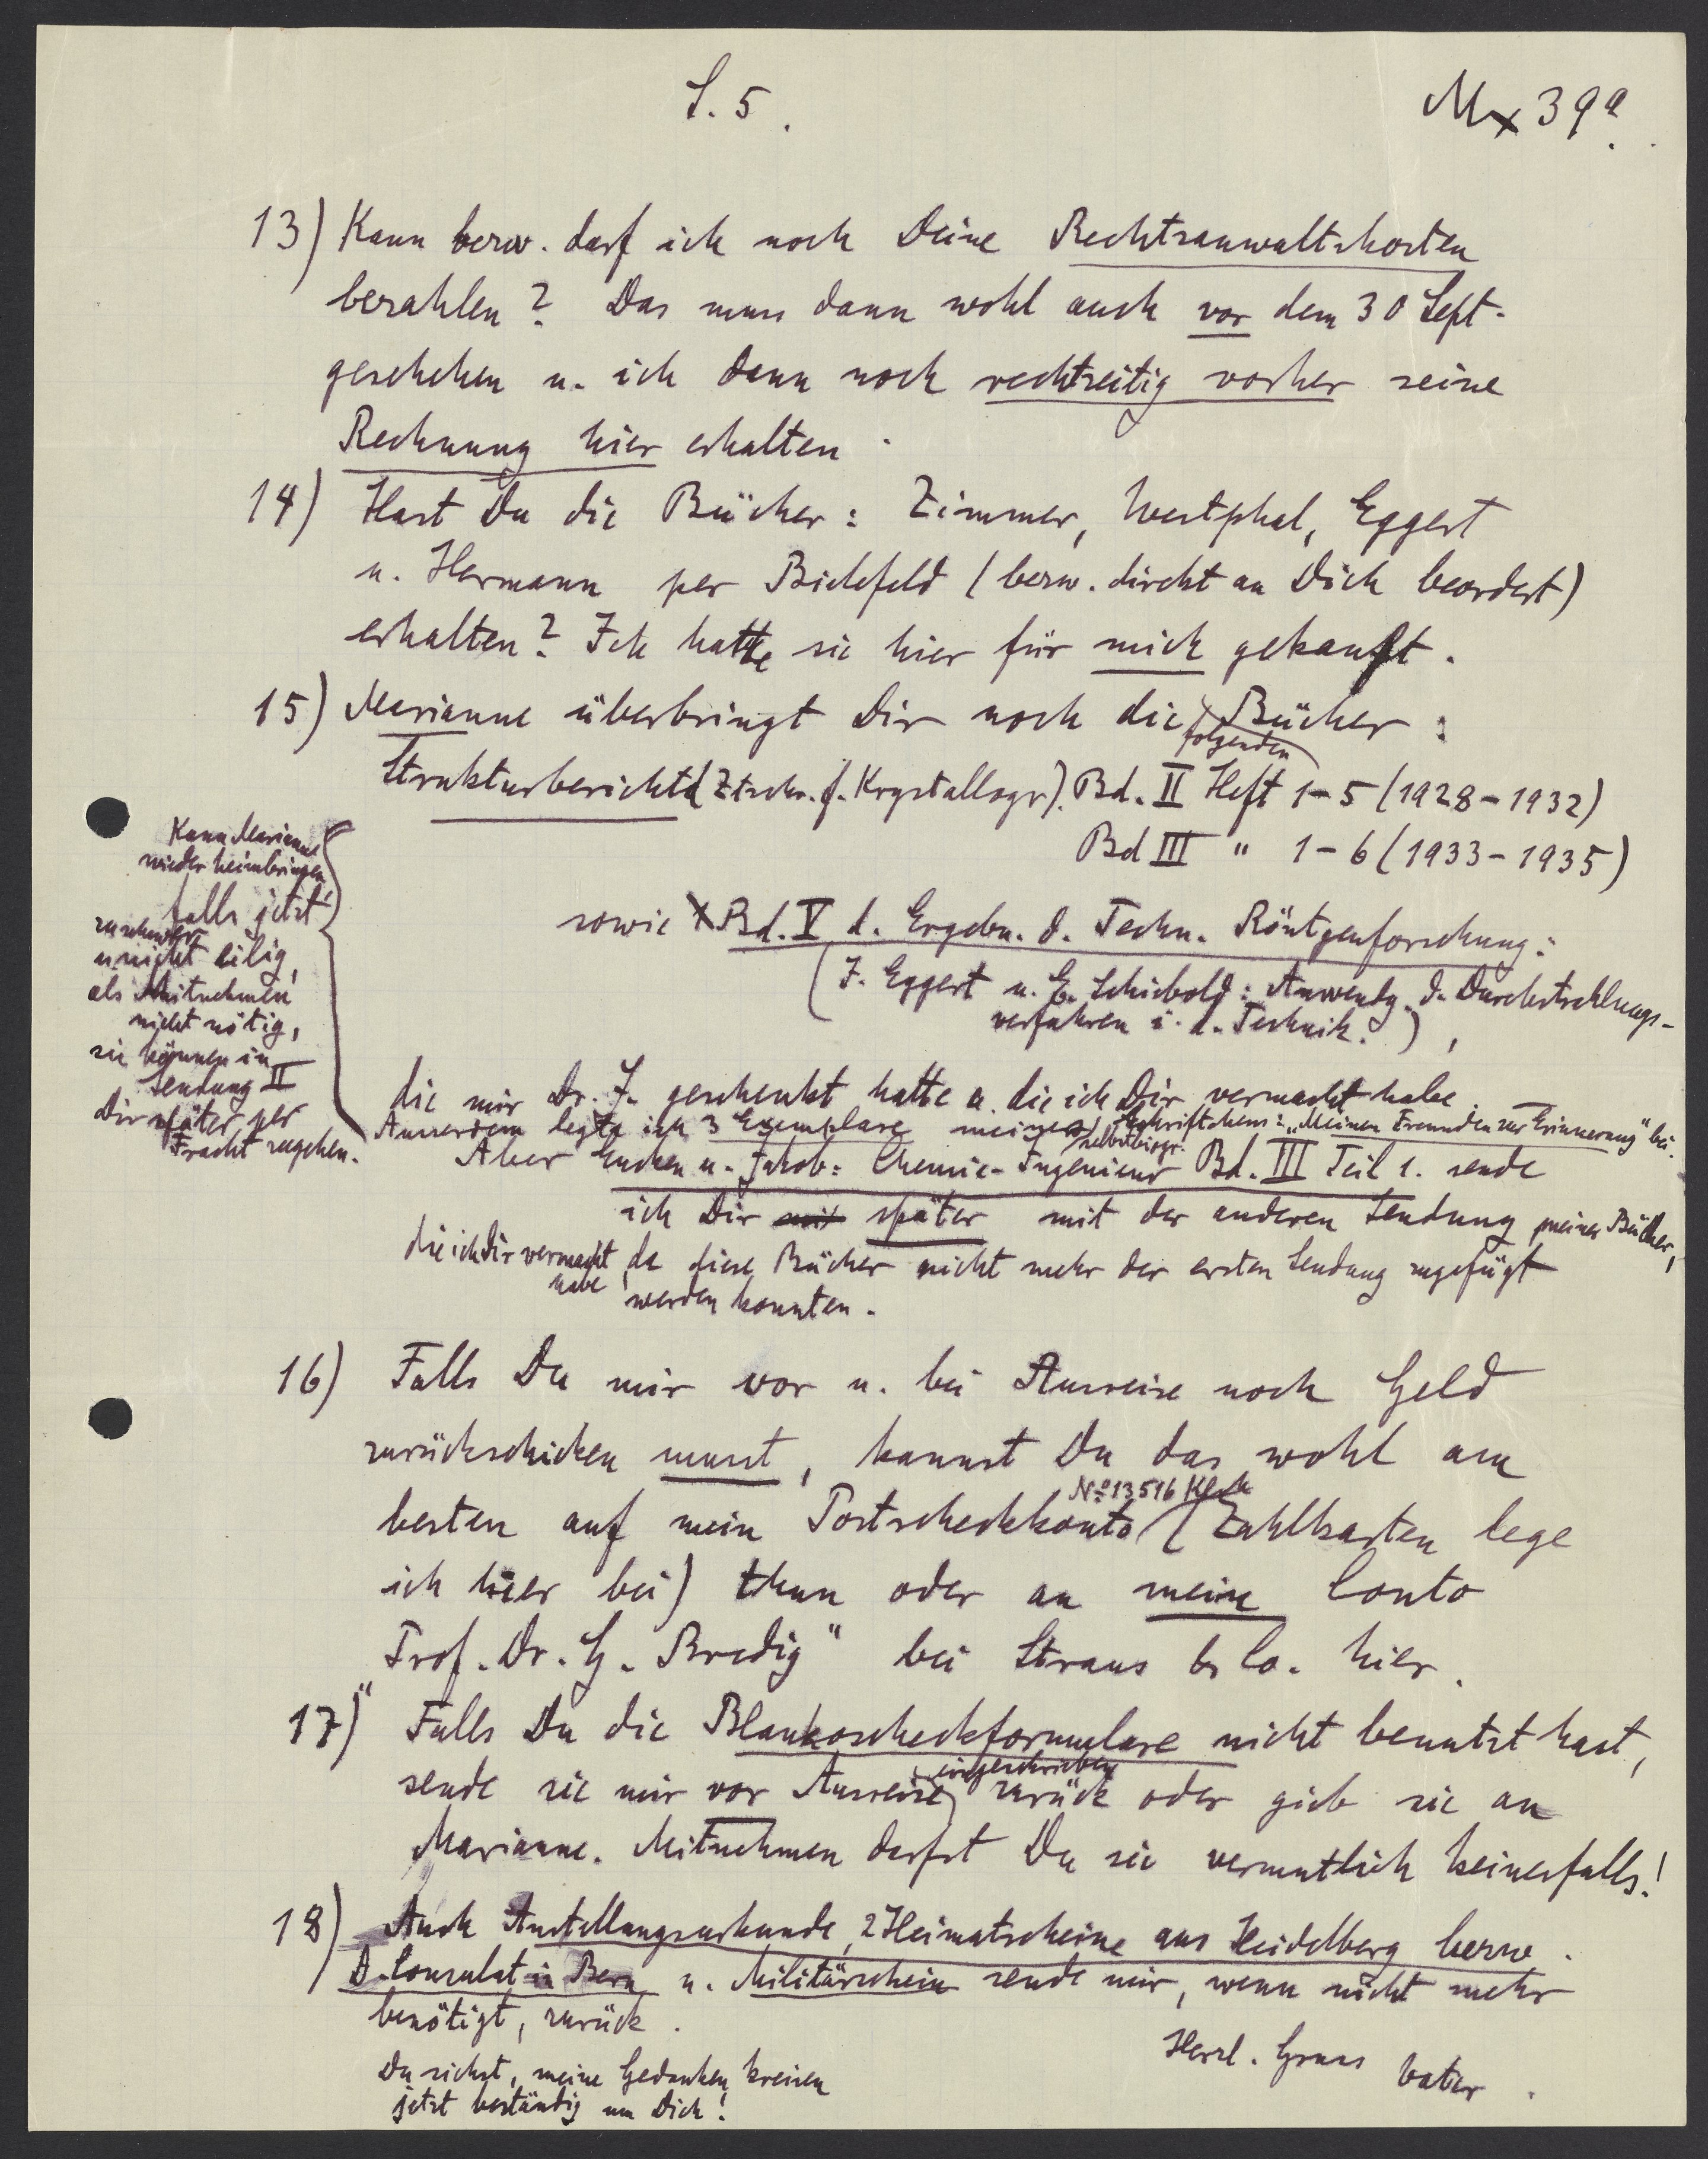 S. 5.
Mx 39a.
13) Kann bezw. darf ich noch Deine Rechtsanwaltskosten
bezahlen? Das muss dann wohl auch vor dem 30 Sept.
geschehen u. ich dann noch rechtzeitig vorher seine
Rechnung hier erhalten.
14) Hast Du die Bücher: Zimmer, Westphal, Eggert
u. Hermann per Bielefeld (bezw. direkt an Dich beordert)
erhalten? Ich hatte sie hier für mich gekauft.
15) Marianne überbringt Dir noch die folgenden Bücher:
Strukturbericht (Ztschr. f. Krystallogr). Bd. II Heft 1-5 (1928-1932)
Bd III " 1-6 (1933-1935)
sowie Bd. V d. Ergebn. d. Techn. Röntgenforschung:
(J. Eggert u. E. Schiebold: Anwendg. d. Durchstrahlungs-
verfahren i. d. Technik.),
die mir Dr. J. geschenkt hatte u. die ich Dir vermacht habe.
Ausserdem legte ich 3 Exemplare meines selbstbiogr. Schriftchens: „Meinen Freunden zur Erinnerung" bei.
Aber Eucken u. Jakob: Chemie-Ingenieur Bd. III Teil 1. sende
ich Dir später mit der anderen Sendung meiner Bücher,
die ich Dir vermacht habe, da diese Bücher nicht mehr der ersten Sendung zugefügt
werden konnten.
Kann Marianne
wieder heimbringen,
falls jetzt
zu schwer
u nicht eilig,
als Mitnehmen
nicht nötig,
sie können in
Sendung II
Dir später per
Fracht zugehen.
16) Falls Du mir vor u. bei Ausreise noch Geld
zurückschicken musst, kannst Du das wohl am
besten auf mein Postscheckkonto No 13516 Klrh (Zahlkarten lege
ich hier bei) thun oder an mein Conto
„Prof. Dr. G. Bredig" bei Straus & Co. hier.
17) Falls Du die Blankoscheckformulare nicht benutzt hast,
sende sie mir vor Ausreise eingeschrieben zurück oder gieb sie an
Marianne. Mitnehmen darfst Du sie vermutlich keinesfalls!
18) Auch Anstellungsurkunde, 2 Heimatscheine aus Heidelberg bezw.
D. Consulat in Bern u. Militärschein sende mir, wenn nicht mehr
benötigt, zurück.
Herzl. Gruss Vater.
Du siehst, meine Gedanken kreisen
jetzt beständig um Dich!